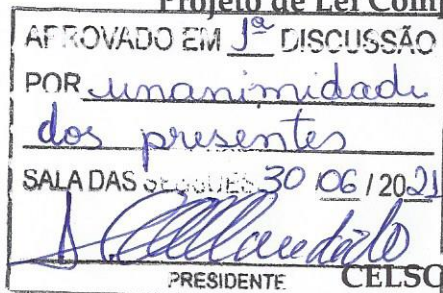 Projeto de Lei Com
APROVADO EM 1ª DISCUSSÃO
POR unanimidade
dos presentes
SALA DAS SESSÕES 30/06/2021
PRESIDENTE CELSO